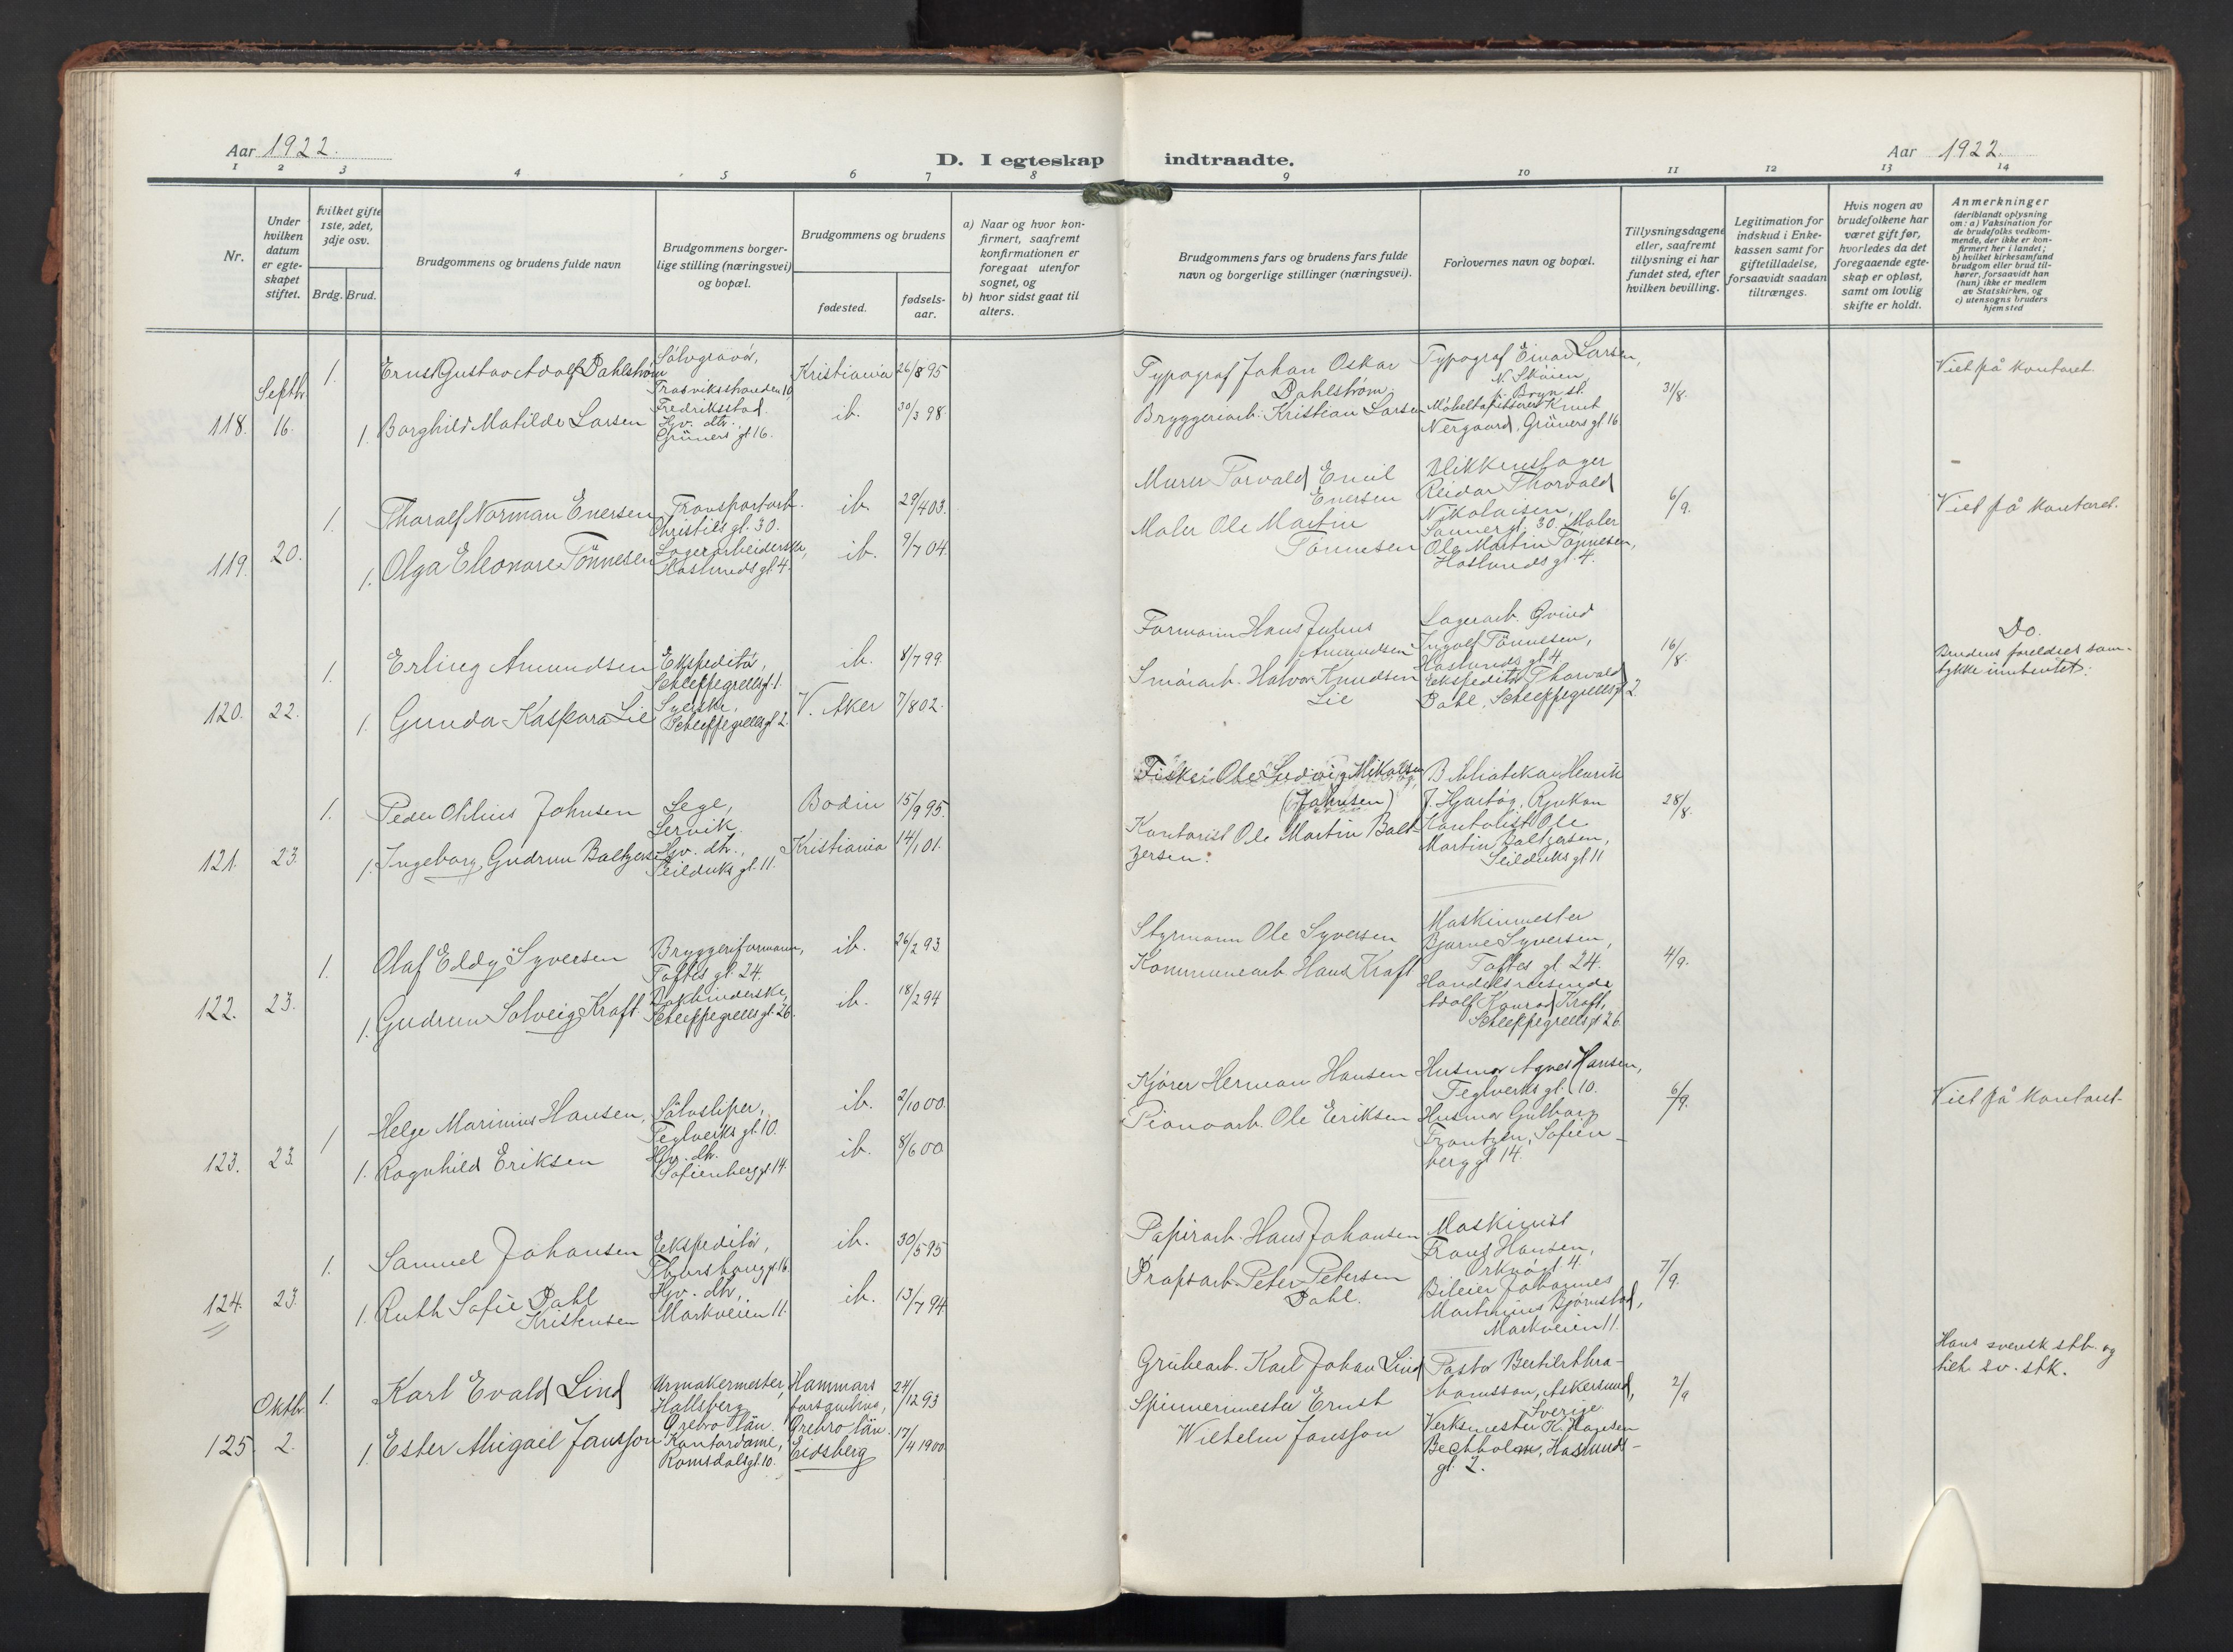 Aar 1922.
D. I egteskap indtraadte.
Aar 1922.
1 2 3 4 5 6 7 8 9 10 11 12 13 14
Nr.
Under hvilken datum er egteskapet stiftet.
Hvilket gifte 1ste, 2det, 3dje osv.
Brdg. Brud.
Brudgommens og brudens fulde navn
Brudgommens borgerlige stilling (næringsvei) og bopæl.
Brudgommens og brudens
fødested.
fødselsaar.
a) Naar og hvor konfirmert, saafremt konfirmationen er foregaat utenfor sognet, og
b) hvor sidst gaat til alters.
Brudgommens fars og brudens fars fulde navn og borgerlige stillinger (næringsvei).
Forlovernes navn og bopæl.
Tillysningsdagene eller, saafremt tillysning ei har fundet sted, efter hvilken bevilling.
Legitimation for indskud i Enkekassen samt for giftetilladelse, forsaavidt saadan tiltrænges.
Hvis nogen av brudefolkene har været gift før, hvorledes da det foregaaende egteskap er opløst, samt om lovlig skifte er holdt.
Anmerkninger
(deriblandt oplysning om: a) Vaksination for de brudefolks vedkommende, der ikke er konfirmert her i landet;
b) hvilket kirkesamfund brudgom eller brud tilhører, forsaavidt han (hun) ikke er medlem av Statskirken, og
c) utensogns bruders hjemsted
118.
Septbr. 16.
1. Ernst Gustav Adolf Dahlstrøm
Sølvgravør,
Fredriksstad.
Kristiania 26/8 95
1. Borghild Matilde Larsen
Hv. dtr.,
Grüners gt 16.
ib. 30/3 98
Typograf Johan Oskar
Dahlstrøm.
Bryggeriarb. Kristian Larsen
Typograf Einar Larsen,
N. Skøien
p. Bryn st.
Møbeltapetserer Knut
Nergaard, Grüners gt 16
31/8.
Viet på kontoret.
119. 20.
1. Thoralf Norman Enersen
Transportarb.
Christies gt. 30.
ib. 29/4 03.
1. Olga Eleonore Tönnesen
Lagerarbeiderske,
Haslunds gt. 4.
ib. 9/7 04.
Murer Torvald Emil
Enersen
Maler Ole Martin
Tönnesen
Blikkenslager
Reidar Thorvald
Nikolaisen,
Sannergt. 30. Maler
Ole Martin Tönnesen,
Haslunds gt. 4.
6/9.
Viet på kontoret.
120. 22.
1. Erling Amundsen
Ekspeditør,
Schleppegrells gt. 1.
ib. 8/7 99.
1. Gunda Kaspara Lie
Syerske,
Schleppegrells gt 2.
V. Aker 7/8 02.
Formann Hans Julius
Amundsen
Smørarb. Halvor Knudsen
Lie
Lagerarb. Øvind
Ingolf Tönnesen,
Haslunds gt 4
Ekspeditør Thorvald
Dahl, Schleppegrells gt 2
16/8.
Do.
Brudens foreldres samtykke innhentet.
121. 23.
1. Peder Ohlius Johnsen
Lege,
Lervik.
Bodin 15/9 95.
1. Ingeborg Gudrun Baltzersen
Hv. dtr.,
Seilduks gt. 11.
Kristiania 14/1 01.
Fisker Ole Ludvig Mikalsen
(Johnsen)
Kontorist Ole Martin Baltzersen.
Bibliotekar Henrik
J. Hjartøy, Rjukan
Kontorist Ole
Martin Baltzersen,
Seilduks gt 11
28/8.
122. 23.
1. Olaf Eddy Syversen
Bryggeriformann,
Toftes gt. 24.
ib. 26/2 93
1. Gudrun Solveig Kraft
Bokbinderske,
Schleppegrells gt. 26.
ib. 18/2 94
Styrmann Ole Syversen
Kommunearb. Hans Kraft
Maskinmester
Bjarne Syversen,
Toftes gt 24.
Handelsreisende
Adolf Konrad Kraft,
Schleppegrells gt 26.
4/9.
123. 23.
1 Helge Marinius Hansen,
Sølvsliper,
Teglverks gt. 10.
ib. 2/10 00.
1. Ragnhild Eriksen
Hv. dtr.
Sofienberg gt 14.
ib. 8/6 00
Kjører Herman Hansen
Pianoarb. Ole Eriksen
Husmor Agnes Hansen,
Teglverks gt. 10.
Husmor Gulborg
Frantzen, Sofienberg gt 14.
6/9.
Viet på kontoret.
124. 23.
1. Samuel Johansen
Ekspeditør,
ib. 30/5 95
1. Ruth Sofie Dahl
Kristensen
Hv. dtr,
Markveien 11.
ib. 13/7 94
Papirarb. Hans Johansen
Peter Petersen
Dahl.
Maskinist
Frans Hansen,
Orknøgt 4.
Bileier Johannes
Martinius Bjørnstad,
Markveien 11.
7/9.
125.
Oktbr. 2.
1. Karl Evald Lind
Urmakermester,
Hallsberg
Örebro län.
Hammars
Örebro län.
24/12 93
1. Ester Abigael Jansson
Kontordame,
Romsdalsgt. 10.
Eidsberg
17/4 1900
Grubearb. Karl Johan Lind
Spinnermester Ernst
Wilhelm Jansson
Pastor Bertil Abrahamsson, Askersund,
Sverige
Verksmester K. Hansen
Bechholm, Haslunds gt. 2.
2/9
Hans svensk stb. og
tilh. sv. stk.